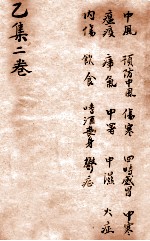 中風 預防中風 傷寒 四時感冒 中寒
瘟疫 瘴氣 中暑 中濕 火症
內傷 飲食 嗜酒喪身 鬱症
乙集二卷